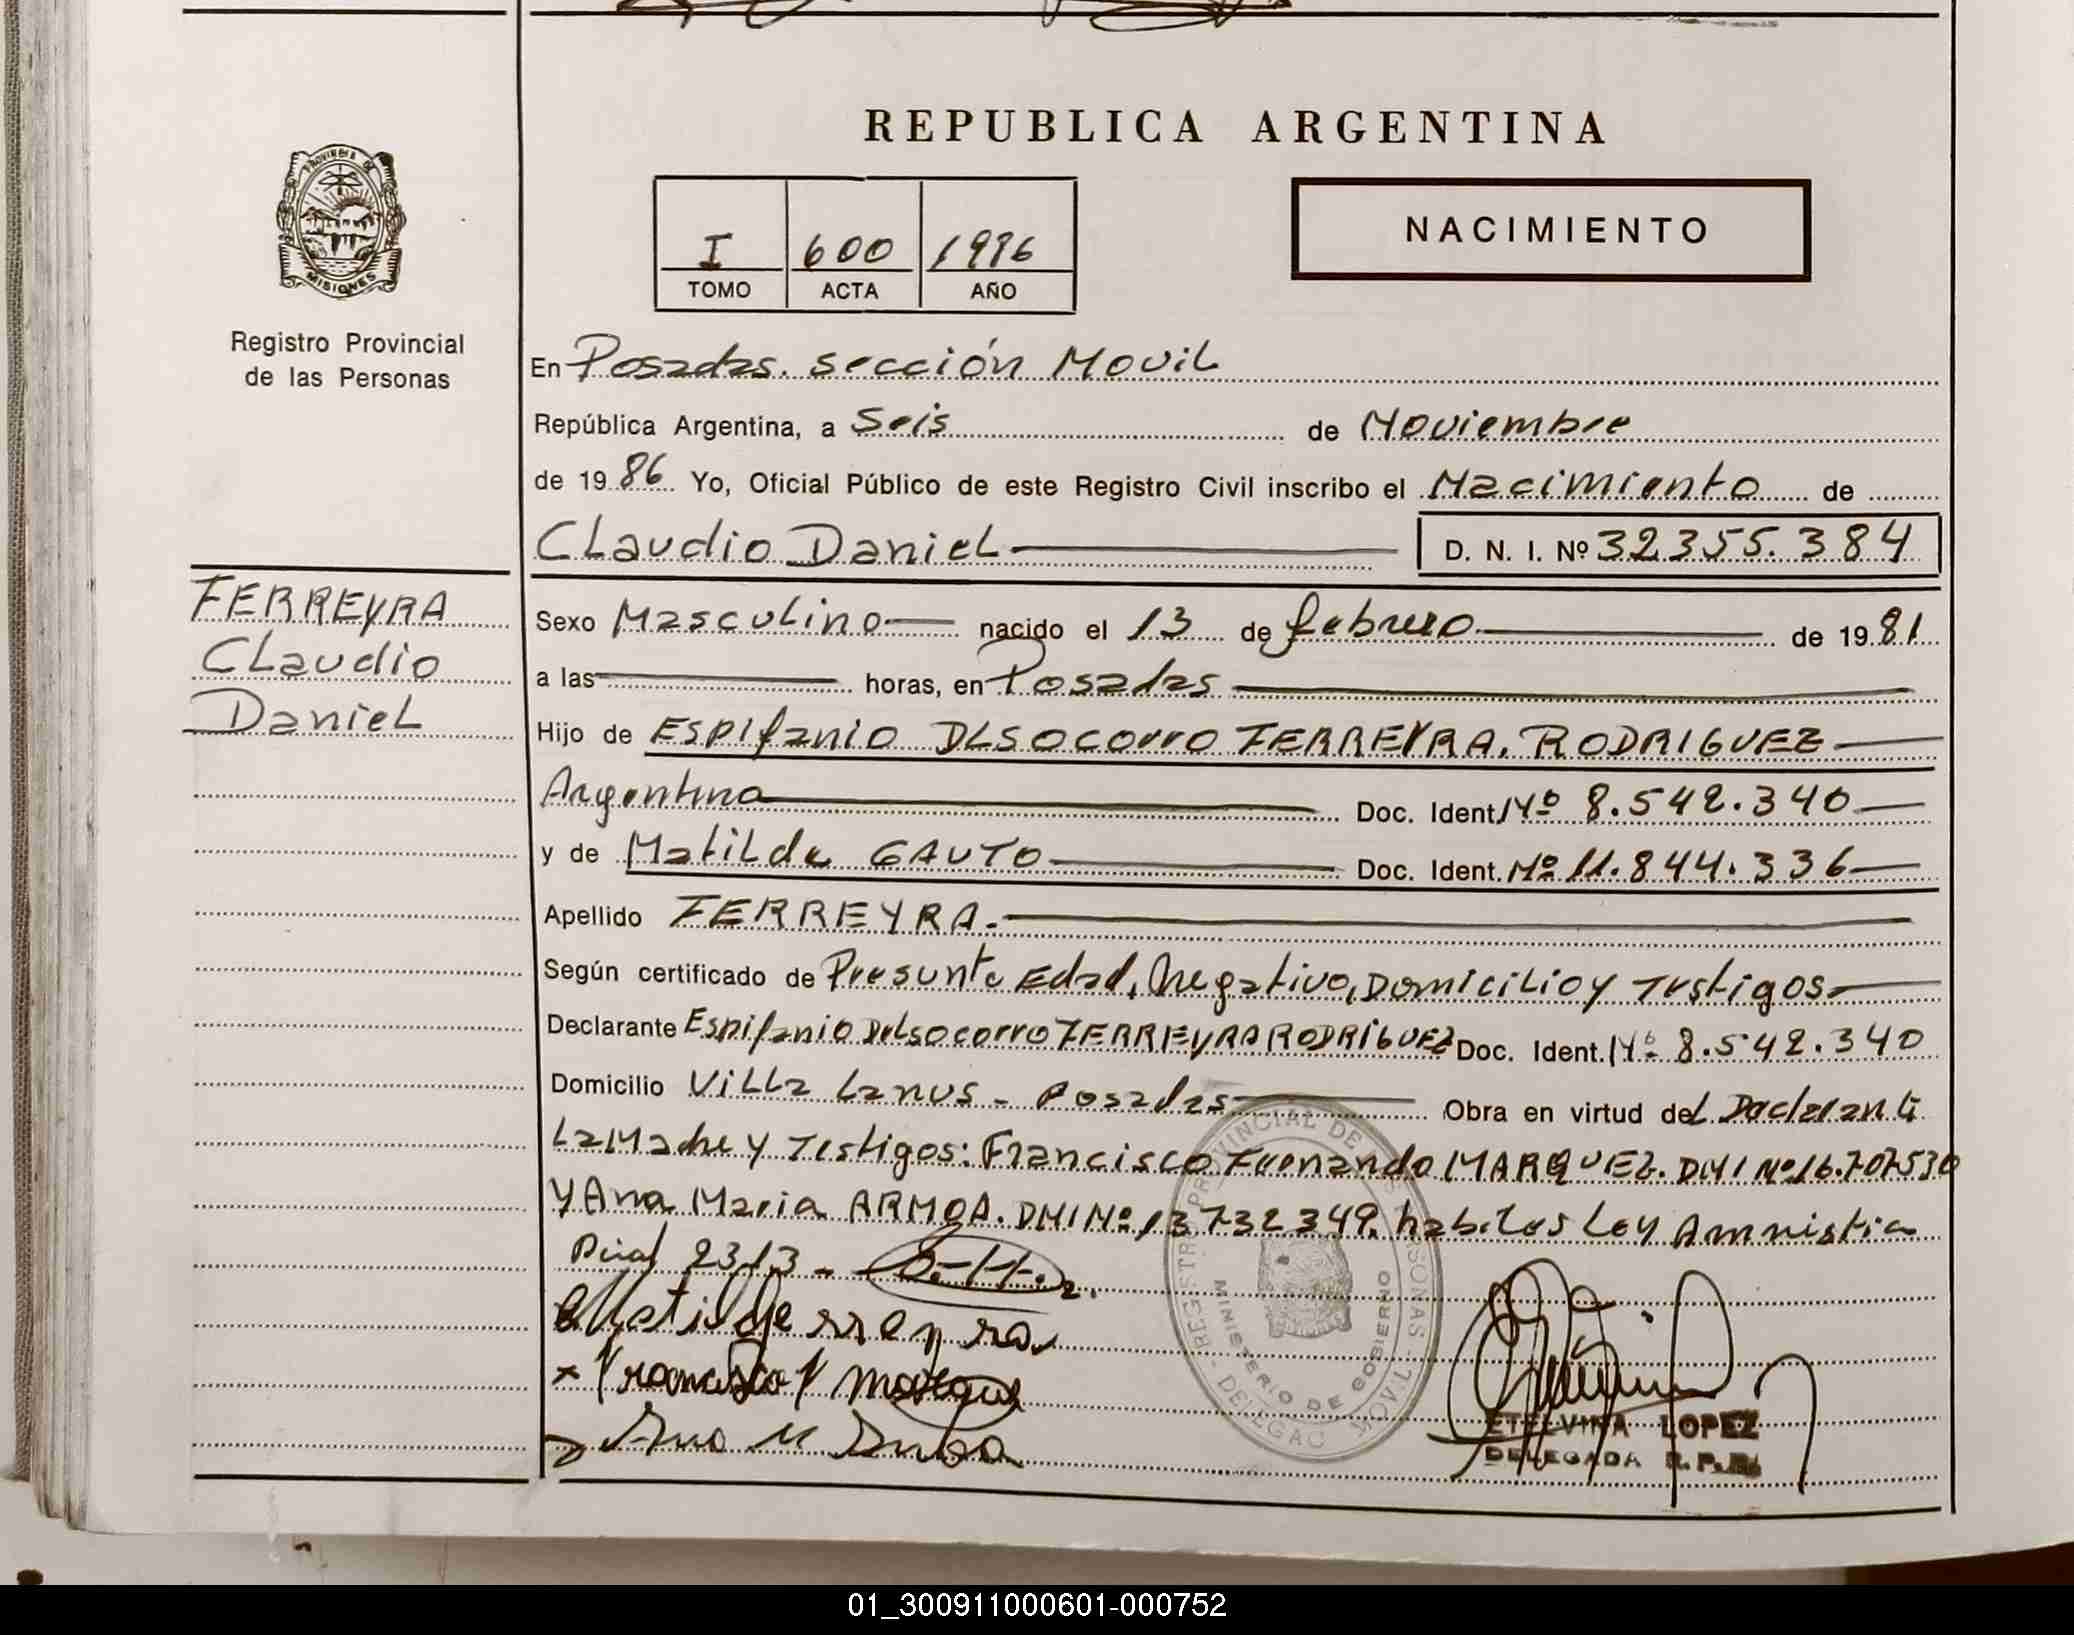 REPUBLICA ARGENTINA
PROVINCIA DE
MISIONES
Registro Provincial
de las Personas
I 600 1986
TOMO ACTA AÑO
NACIMIENTO
En Posadas. sección Movil
República Argentina, a Seis de Noviembre
de 19 86 Yo, Oficial Público de este Registro Civil inscribo el Nacimiento de
Claudio Daniel D. N. I. Nº 32.355.384
FERREYRA
Claudio
Daniel
Sexo Masculino nacido el 13 de febrero de 19 81
a las horas, en Posadas
Hijo de Espifanio DLSOCORRO FERREYRA. RODRIGUEZ
Argentina Doc. Ident. Nº 8.542.340
y de Matilde GAUTO Doc. Ident. Nº 11.844.336
Apellido FERREYRA.
Según certificado de Presunta Edad, Negativo, Domicilio y Testigos
Declarante Espifanio Delsocorro FERREYRA RODRÍGUEZ Doc. Ident. Nº 8.542.340
Domicilio Villa Lanus - Posadas Obra en virtud del Declarante
La Madre y Testigos: Francisco Fernando MARQUEZ. DNI Nº 16.707530
y Ana Maria ARMOA. DNI Nº 13732349. habiles Ley Amnistia
23/3 -
REGISTRO PROVINCIAL DE LAS PERSONAS - DELEGAC MOVIL
MINISTERIO DE GOBIERNO
ETELVINA LOPEZ
DELEGADA R.P.P.
01_300911000601-000752